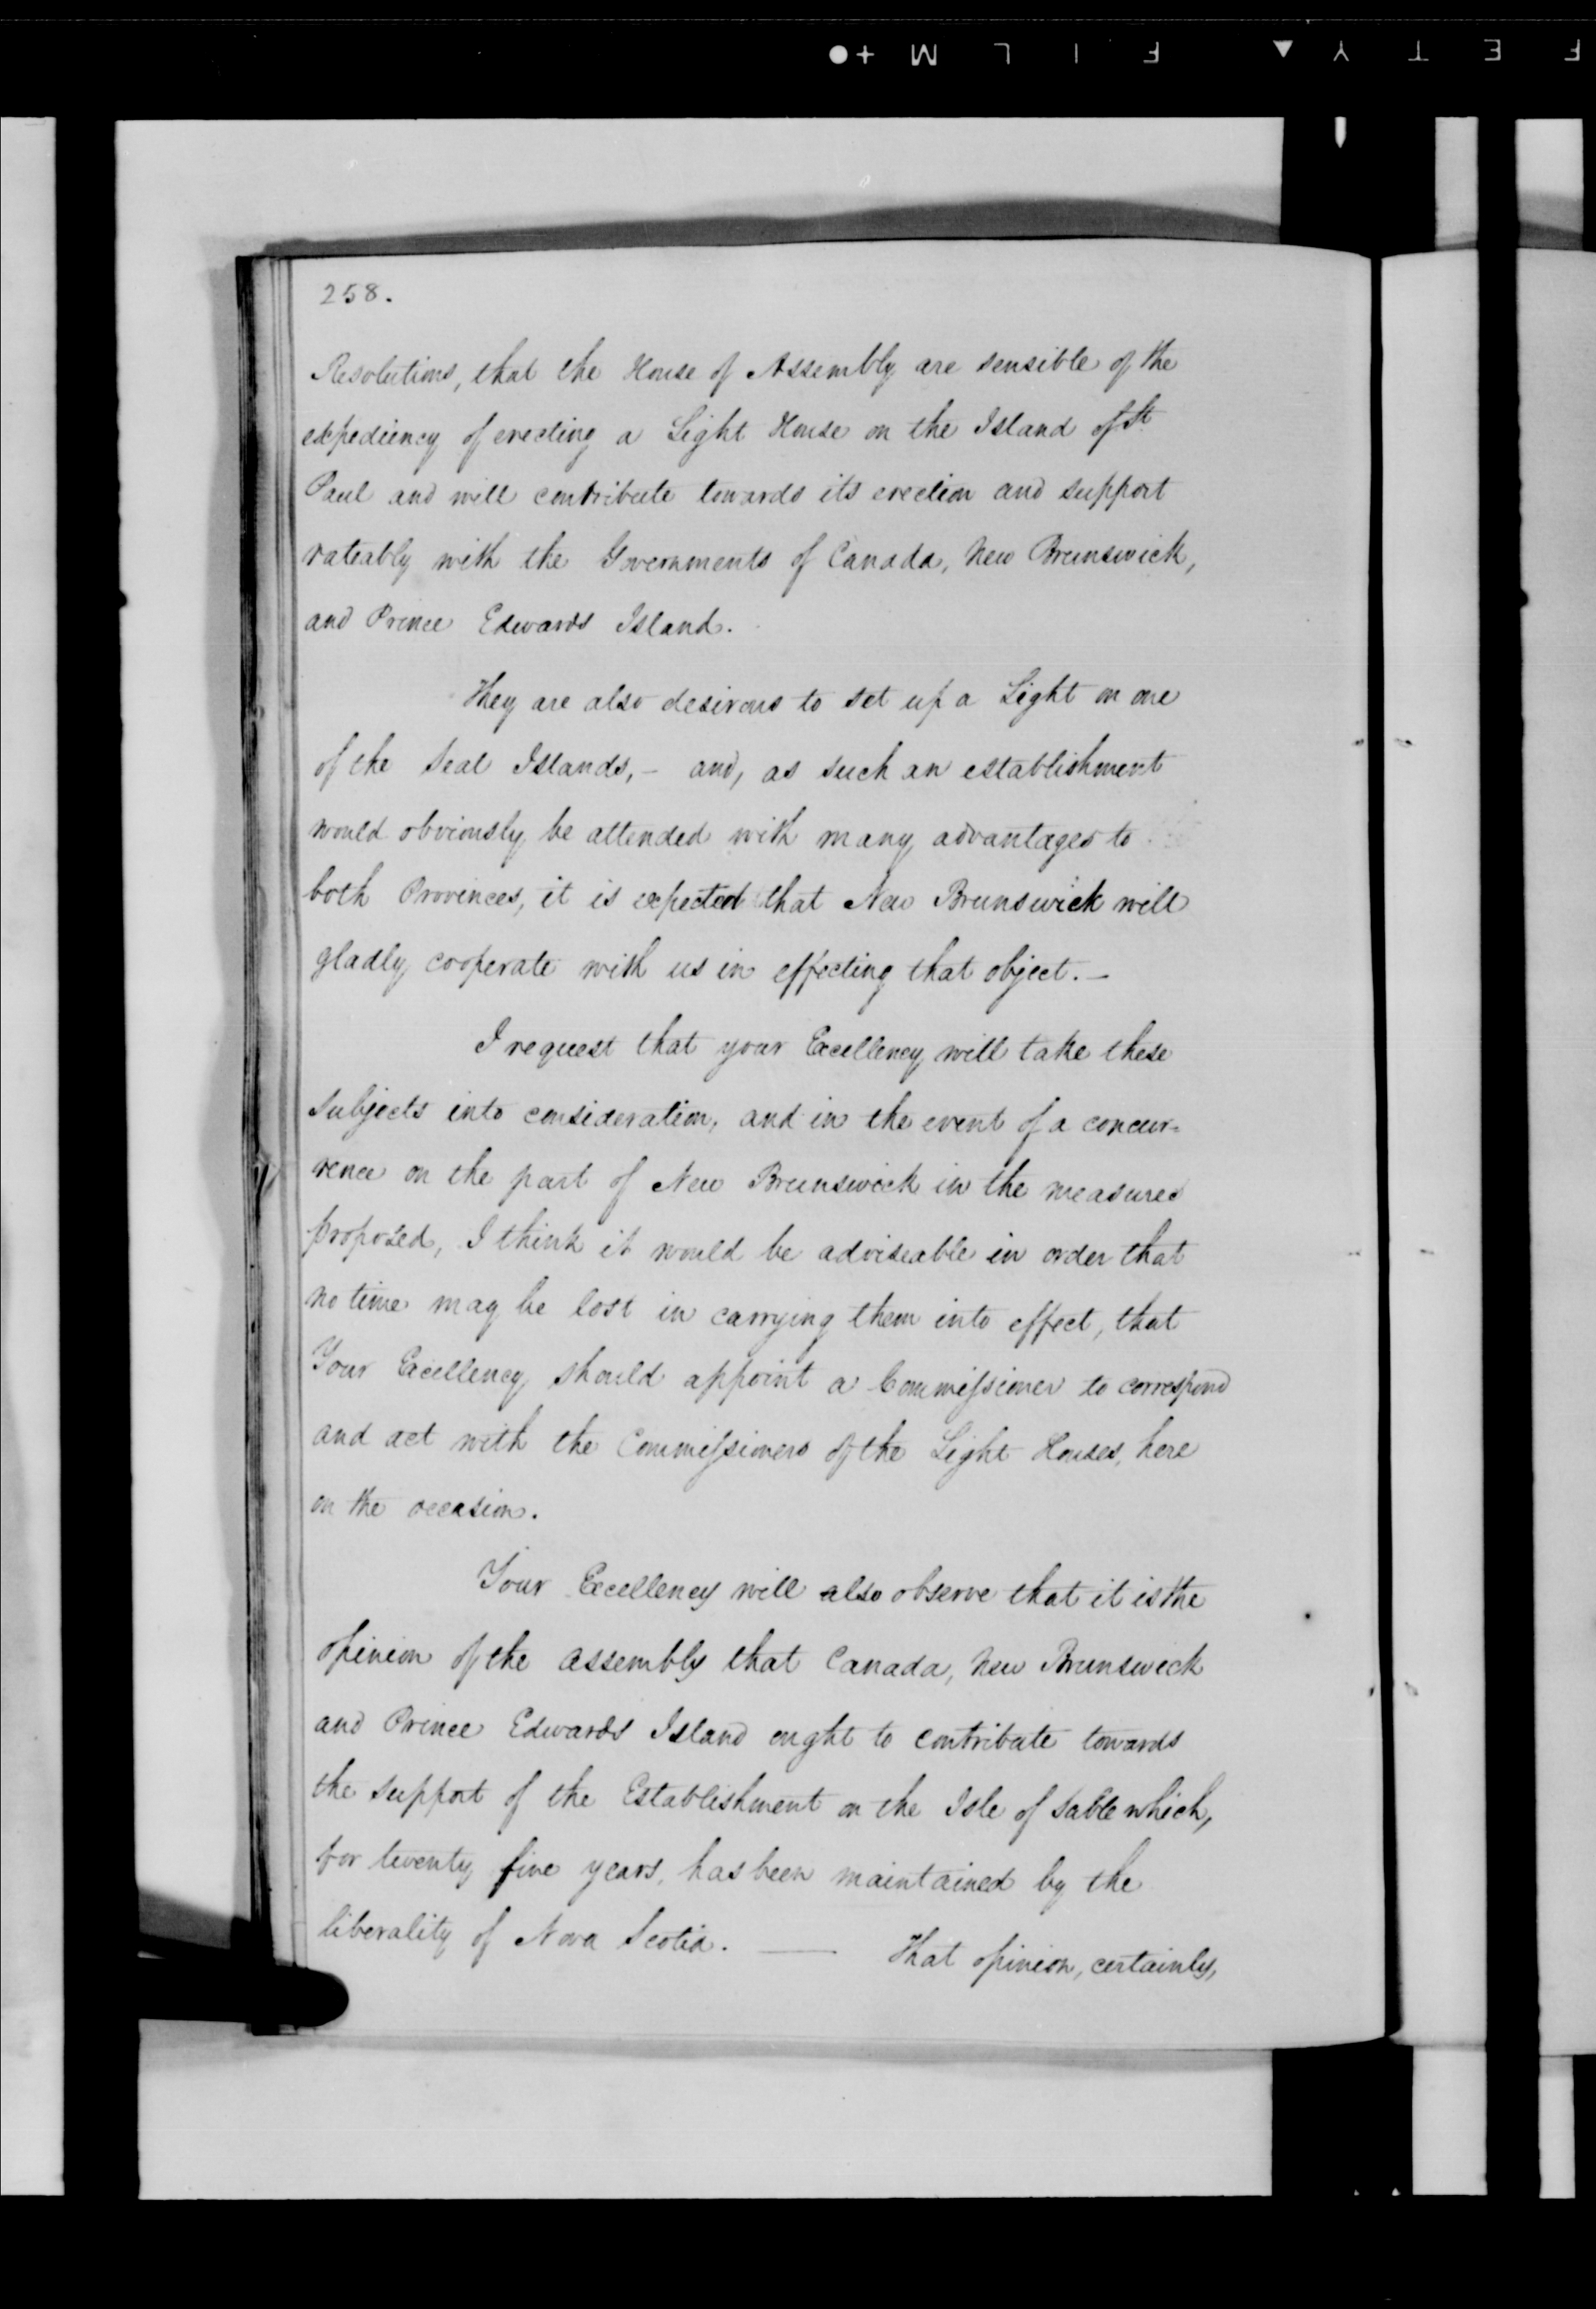 F E T Y ▲ F I L M +●
258.
Resolutions, that the House of Assembly are sensible of the
expediency of erecting a Light House on the Island of St
Paul and will contribute towards its erection and support
rateably with the Governments of Canada, New Brunswick,
and Prince Edwards Island.
They are also desirous to set up a Light on one
of the Seal Islands, - and, as such an establishment
would obviously be attended with many advantages to
both Provinces, it is expected that New Brunswick will
gladly cooperate with us in effecting that object. -
I request that your Excellency will take these
subjects into consideration, and in the event of a concur=
rence on the part of New Brunswick in the measures
proposed, I think it would be adviseable in order that
no time may be lost in carrying them into effect, that
Your Excellency should appoint a Commissioner to correspond
and act with the Commissioners of the Light Houses, here
on the occasion.
Your Excellency will also observe that it is the
opinion of the Assembly that Canada, New Brunswick
and Prince Edwards Island ought to contribute towards
the support of the Establishment on the Isle of Sable which,
for twenty five years, has been maintained by the
liberality of Nova Scotia. — That opinion, certainly,